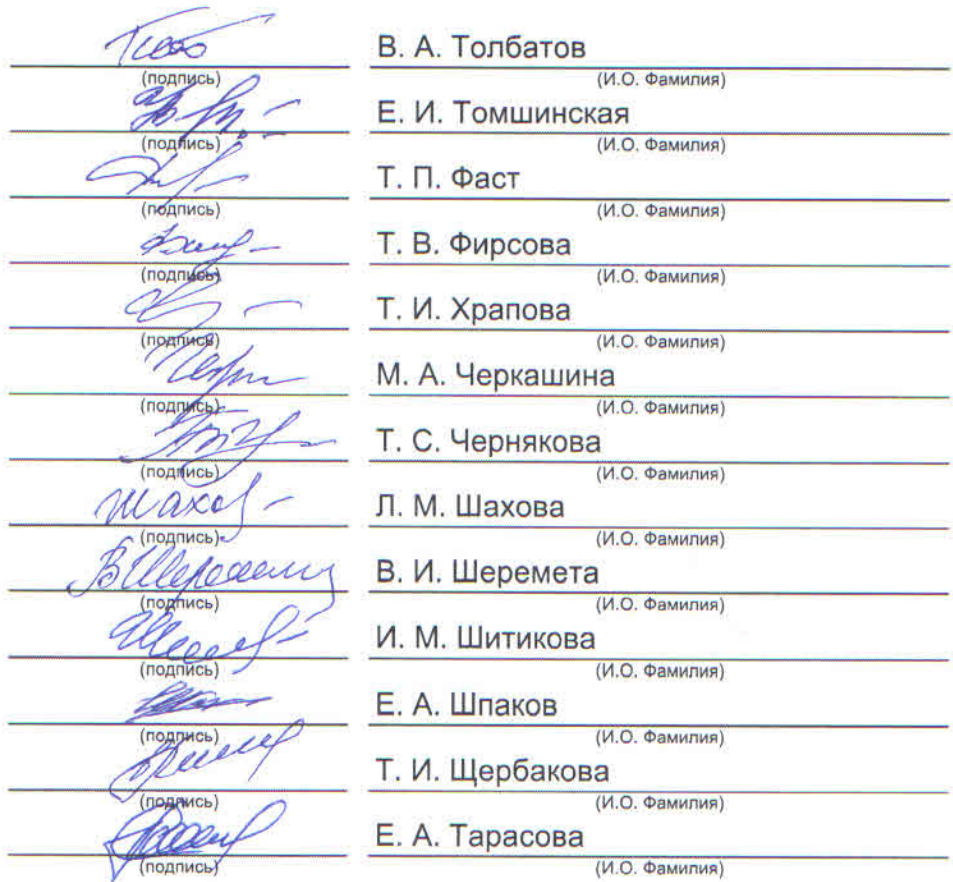 В. А. Толбатов
(подпись) (И.О. Фамилия)
Е. И. Томшинская
(подпись) (И.О. Фамилия)
Т. П. Фаст
(подпись) (И.О. Фамилия)
Т. В. Фирсова
(подпись) (И.О. Фамилия)
Т. И. Храпова
(подпись) (И.О. Фамилия)
М. А. Черкашина
(подпись) (И.О. Фамилия)
Т. С. Чернякова
(подпись) (И.О. Фамилия)
Шахов Л. М. Шахова
(подпись) (И.О. Фамилия)
В. И. Шеремета
(подпись) (И.О. Фамилия)
И. М. Шитикова
(подпись) (И.О. Фамилия)
Е. А. Шпаков
(подпись) (И.О. Фамилия)
Т. И. Щербакова
(подпись) (И.О. Фамилия)
Е. А. Тарасова
(подпись) (И.О. Фамилия)